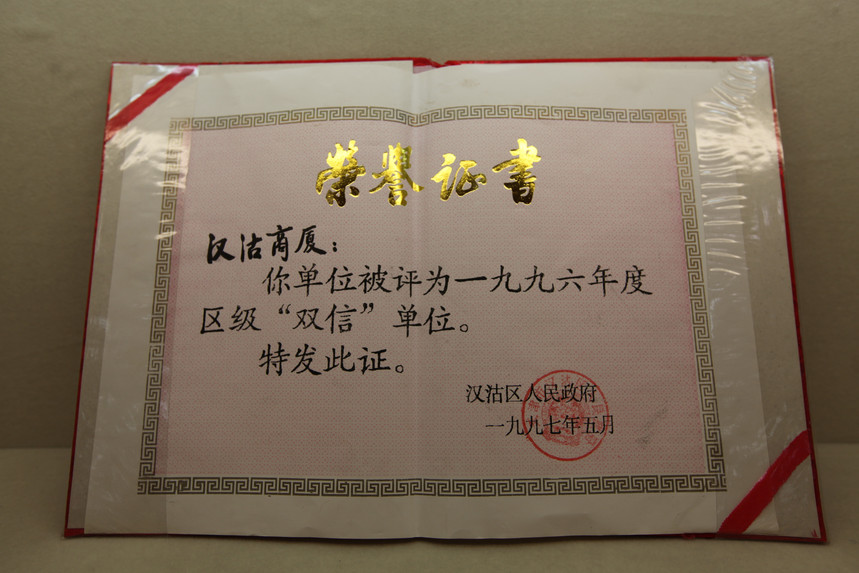 荣誉证书
汉沽商厦：
你单位被评为一九九六年度
区级“双信”单位。
特发此证。
汉沽区人民政府
一九九七年五月